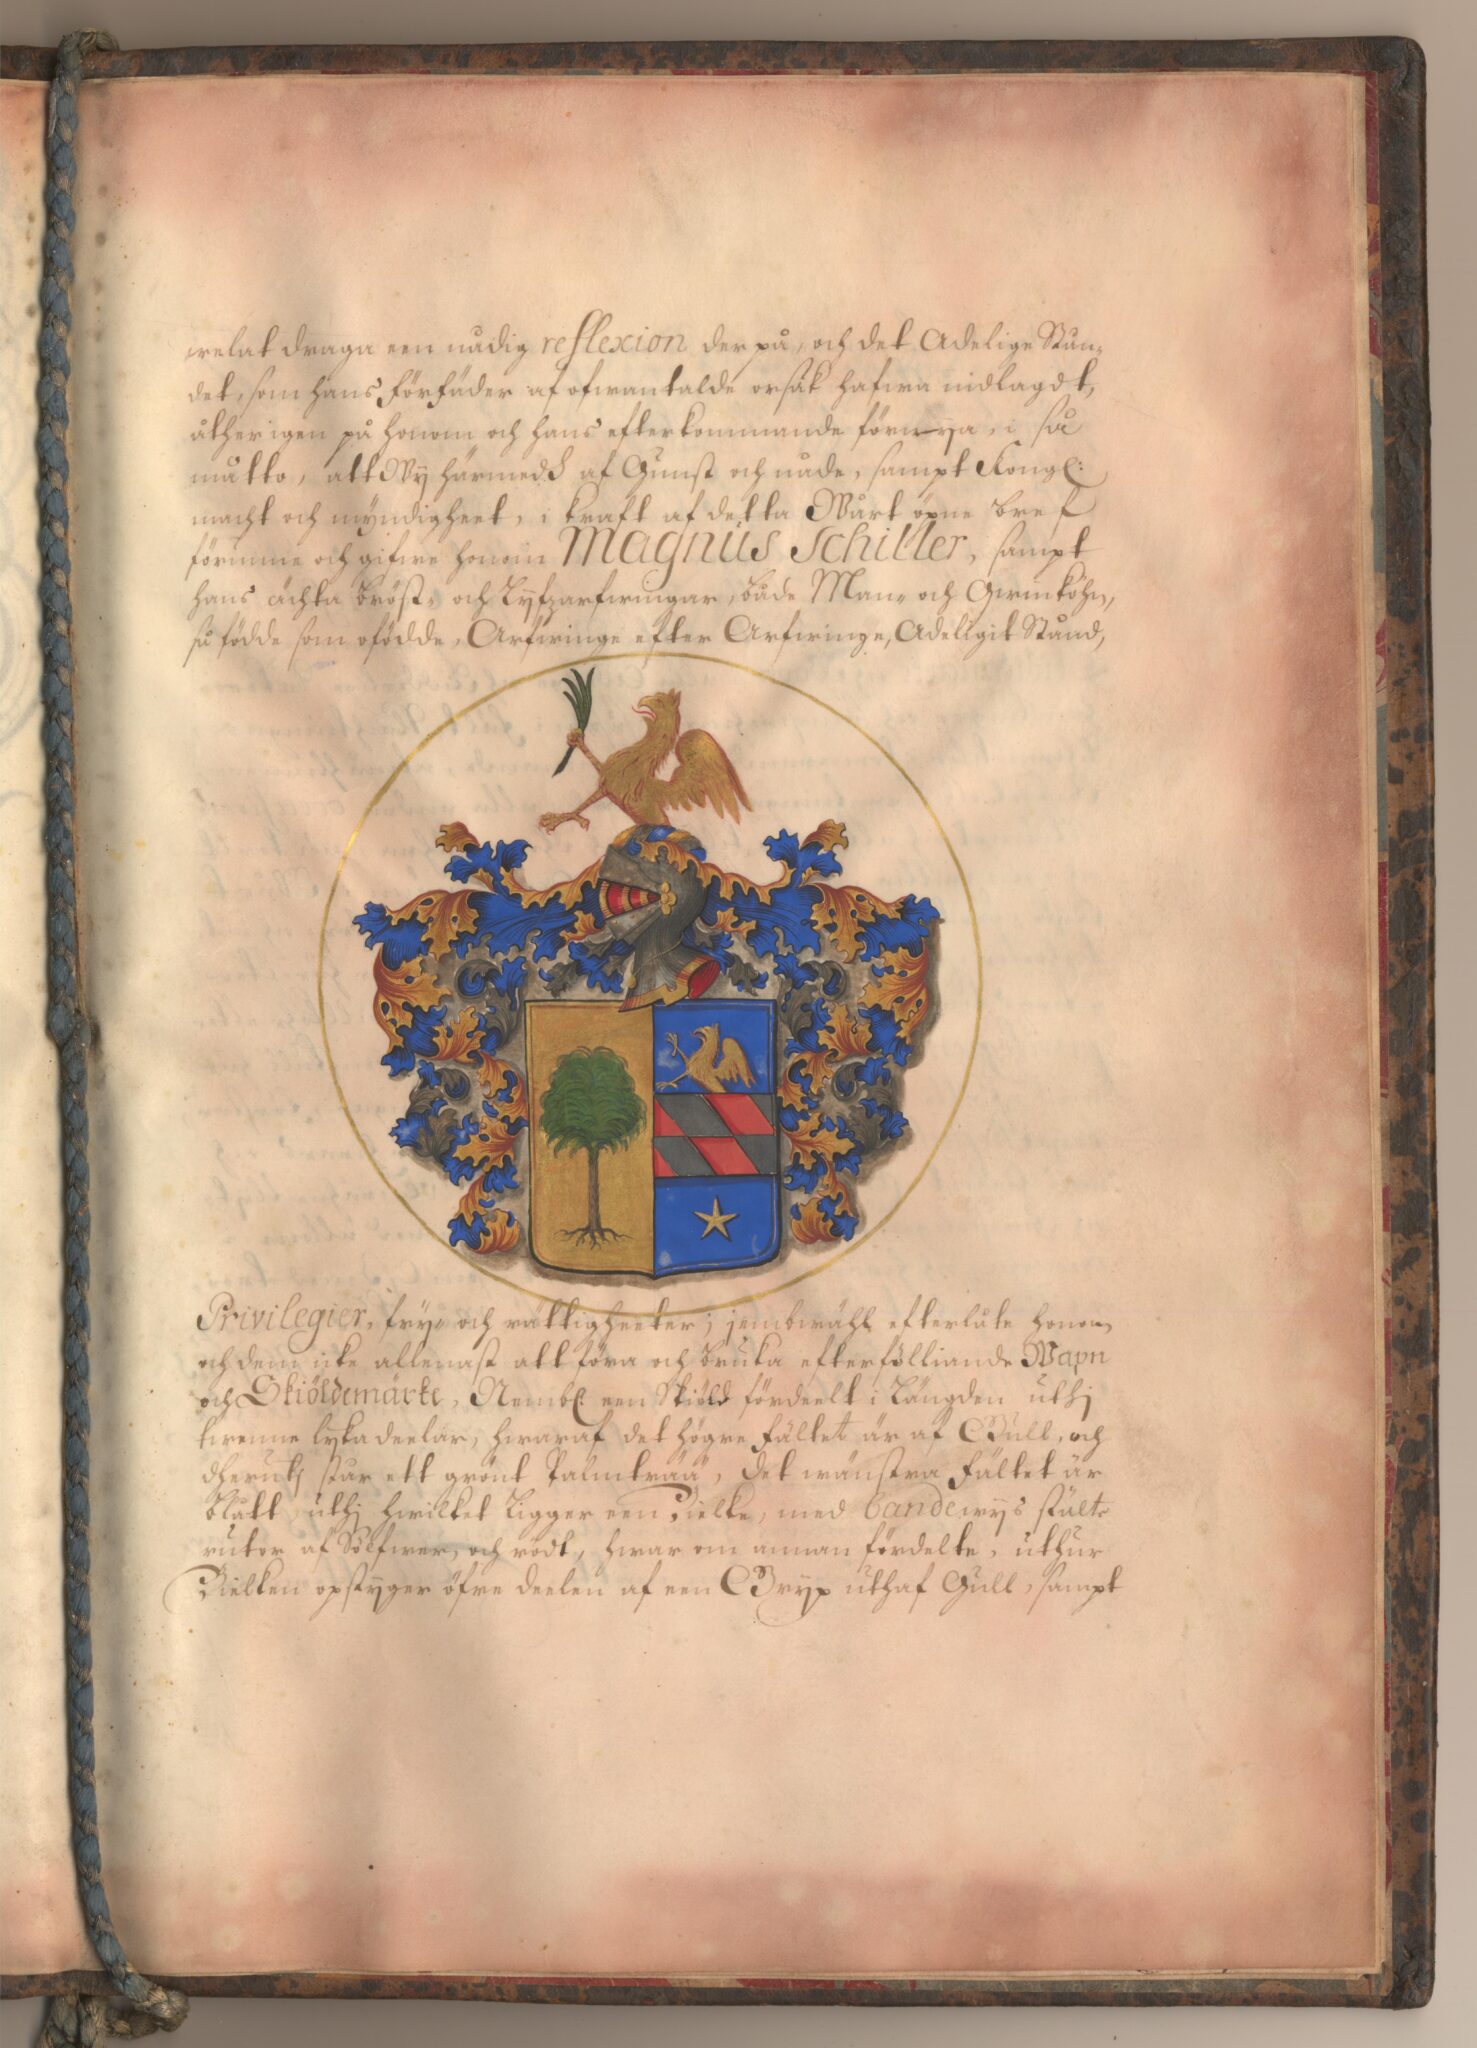 welat draga een nådig reflexion der på, och det Adelige Stån-
det, som hans Förfäder af ofwantalde orsak hafwa nidlagdt,
åther igen på honom och hans efterkommande förnya, i så
måtto, att Wij härmedh af Gunst och nåde, sampt Kongl:
macht och myndigheet, i kraft af detta Wårt öpne bref
förunne och gifwe honom Magnus Schiller, sampt
hans ächta bröst- och Lyfzarfwingar, både Man- och Qwinköhn,
så födde som ofödde, Arfwinge efter Arfwinge, Adeligit Stånd,
Privilegier, fry- och rättigheeter; jembwähl efterlåte honom
och dem icke allenast att föra och bruka efterfölliande Wapn
och Skiöldemärke, Nembl: een Skiöld fördeelt i Längden uthj
twenne lyka deelar, hwaraf det högre Fältet är af Gull, och
dherutj står ett grönt Palmträä, det wänstra Fältet är
blått, uthj hwilket Ligger een Bielke, med bandewijs stälte
rutor af Sölfwer, och rödt, hwar om annan fördelte, uthur
Bielken opstyger öfre deelen af een Gryp uthaf Gull, sampt